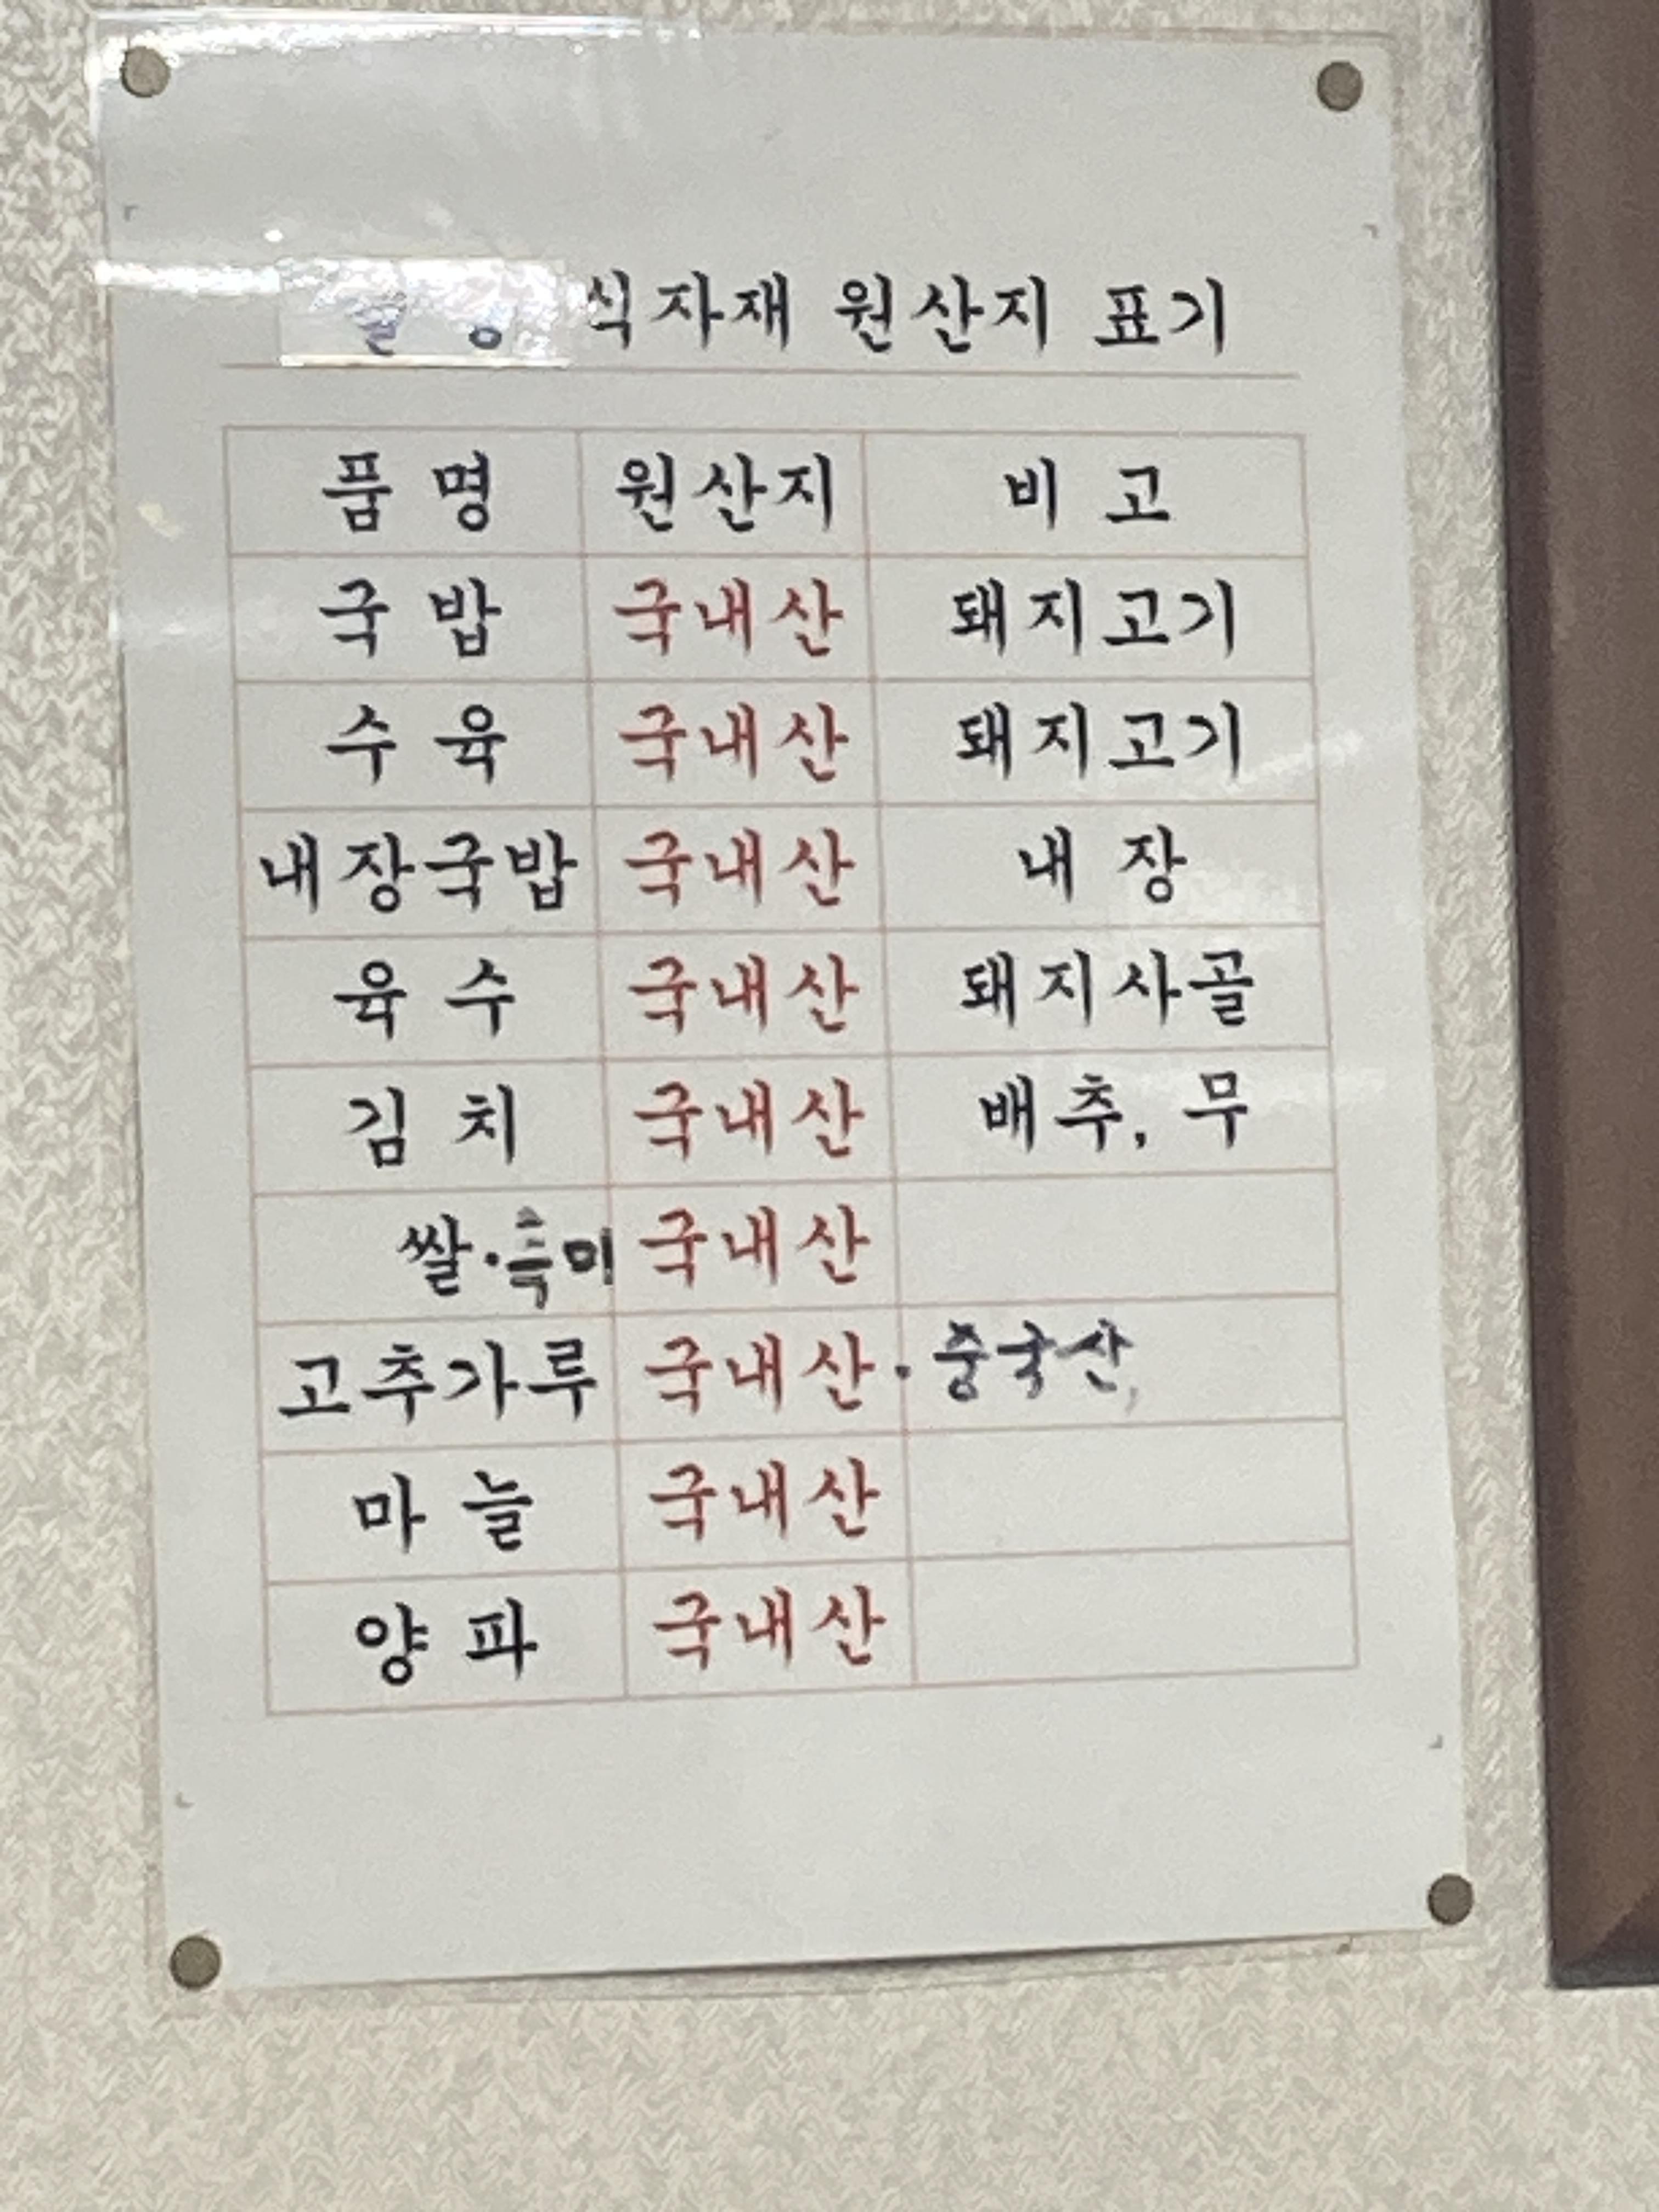 식자재 원산지 표기
품 명 원산지 비 고
국 밥 국내산 돼지고기
수 육 국내산 돼지고기
내장국밥 국내산 내 장
육 수 국내산 돼지사골
김 치 국내산 배추, 무
쌀·흑미 국내산
고추가루 국내산·중국산,
마 늘 국내산
양 파 국내산